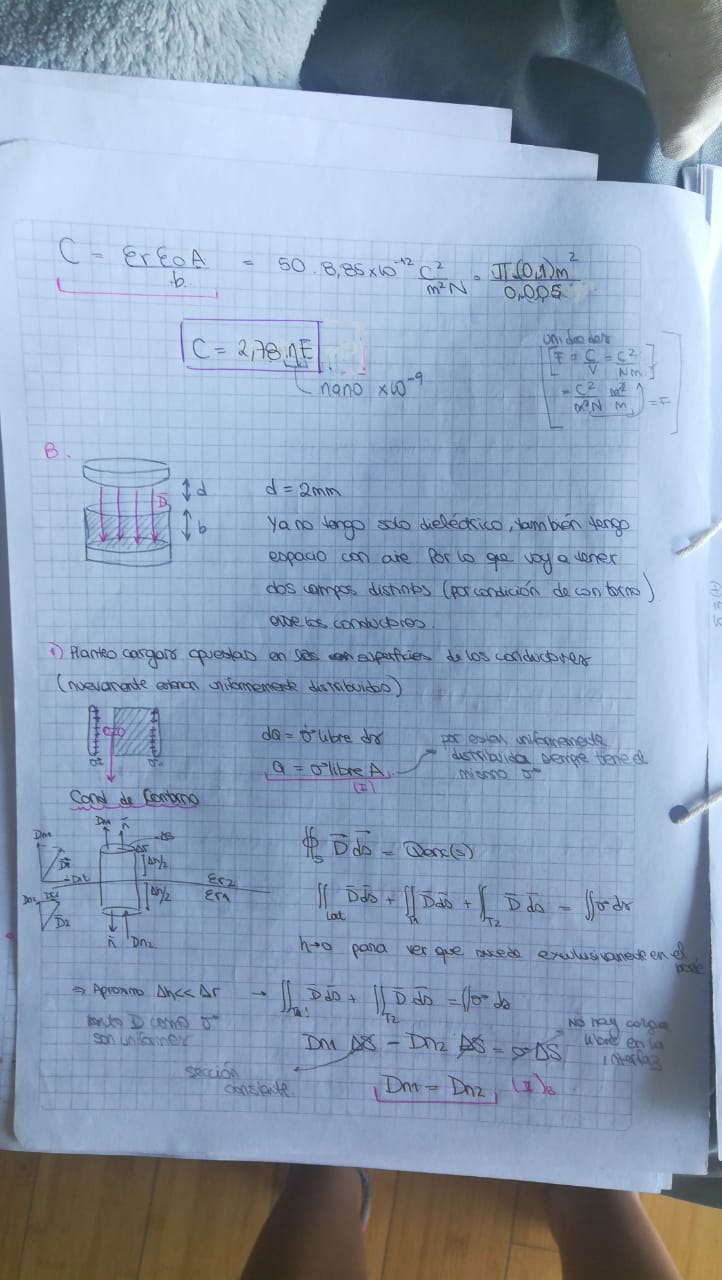 C = ErEoA / b = 50 . 8,85x10⁻¹² C²/m²N . π.(0,1)m² / 0,005
C = 2,78 nF
nano x10⁻⁹
unidades
[F = C/V = C²/Nm
= C²/m²N m²/m = F]
B.
D̄
d
b
d = 2mm
Ya no tengo solo dieléctrico, también tengo
espacio con aire por lo que voy a tener
dos campos distintos (por condición de contorno)
entre los conductores
1) Planteo cargas opuestas en superficies de los conductores
(nuevamente estarán uniformemente distribuidos)
dQ = σ libre ds
Q = σ libre A
(I)
por estar uniformemente
distribuida siempre tiene el
mismo σ
Cond de Contorno
Dn1 n̄ ΔS
Δr
Δh/2
Δh/2
Er2
Er1
D̄1
D̄2
n̄ Dn2
∯s D̄ ds̄ = Qenc(s)
∬Lat D̄ ds̄ + ∬T1 D̄ ds̄ + ∬T2 D̄ ds̄ = ∬σ ds
h→0 para ver que sucede exclusivamente en el borde
⇒ Aproximo Δh<<Δr → ∬T1 D̄ ds̄ + ∬T2 D̄ ds̄ = ∬σ ds
tanto D como σ
son uniformes
Dn1 ΔS - Dn2 ΔS = σ ΔS
No hay carga
libre en la
interfaz
sección
constante
Dn1 = Dn2 (II)B